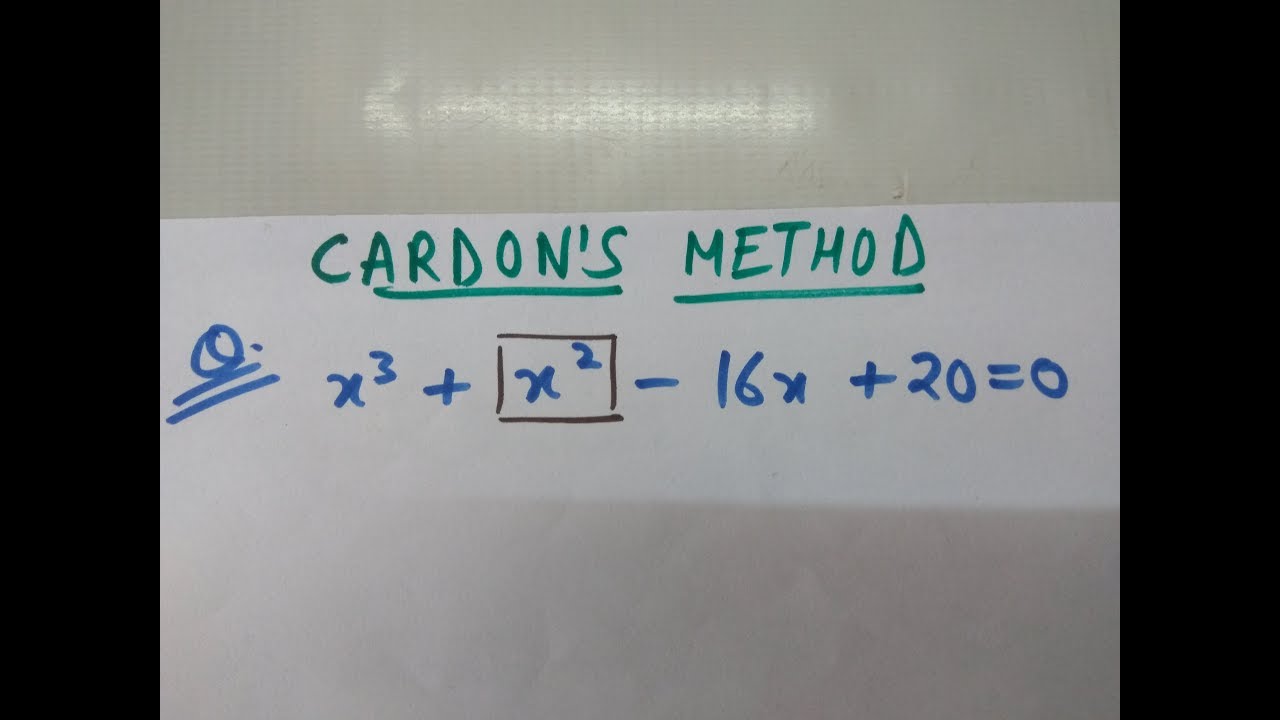 CARDON'S METHOD
Q. x³ + x² - 16x + 20 = 0